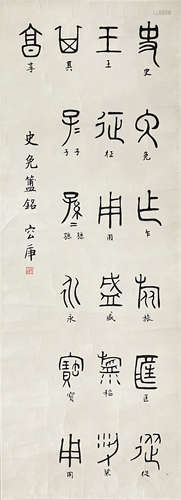 史免乍旅匡從
王征用盛稻粱
其子子孫孫永寶用
享
史免簠銘 容庚